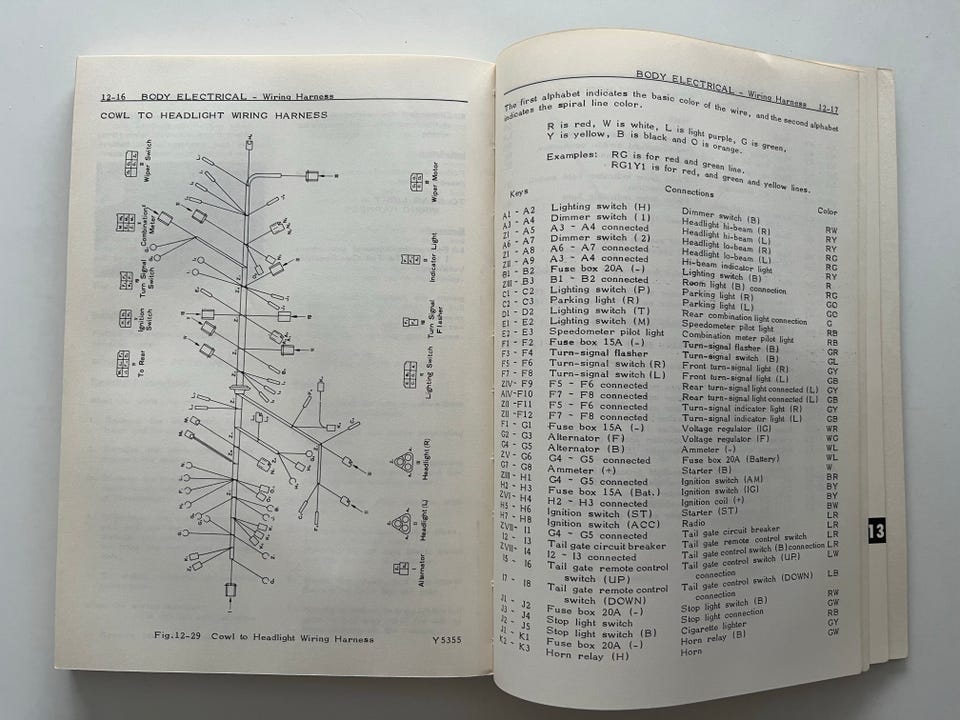 12-16 BODY ELECTRICAL - Wiring Harness
COWL TO HEADLIGHT WIRING HARNESS
Wiper Switch
Combination Meter
Turn Signal Switch
Ignition Switch
To Rear
Wiper Motor
Indicator Light
Turn Signal Flasher
Lighting Switch
Headlight (R)
Headlight (L)
Alternator
Fig.12-29 Cowl to Headlight Wiring Harness Y5355
BODY ELECTRICAL - Wiring Harness 12-17
The first alphabet indicates the basic color of the wire, and the second alphabet
indicates the spiral line color.
R is red, W is white, L is light purple, G is green,
Y is yellow, B is black and O is orange.
Examples: RG is for red and green line.
RG1Y1 is for red, and green and yellow lines.
Keys Connections Color
A1 - A2 Lighting switch (H) Dimmer switch (B) RW
A3 - A4 Dimmer switch (1) Headlight hi-beam (R) RY
Z1 - A5 A3 - A4 connected Headlight hi-beam (L) RY
A6 - A7 Dimmer switch (2) Headlight lo-beam (R) RG
Z1 - A8 A6 - A7 connected Headlight lo-beam (L) RG
ZII - A9 A3 - A4 connected Hi-beam indicator light RY
B1 - B2 Fuse box 20A (-) Lighting switch (B) R
ZIII - B3 B1 - B2 connected Room light (B) connection RG
C1 - C2 Lighting switch (P) Parking light (R) GO
C2 - C3 Parking light (R) Parking light (L) GO
D1 - D2 Lighting switch (T) Rear combination light connection G
E1 - E2 Lighting switch (M) Speedometer pilot light RB
E2 - E3 Speedometer pilot light Combination meter pilot light RB
F1 - F2 Fuse box 15A (-) Turn-signal flasher (B) GR
F3 - F4 Turn-signal flasher Turn-signal switch (B) GL
F5 - F6 Turn-signal switch (R) Front turn-signal light (R) GY
F7 - F8 Turn-signal switch (L) Front turn-signal light (L) GB
ZIV - F9 F5 - F6 connected Rear turn-signal light connected (L) GY
AIV-F10 F7 - F8 connected Rear turn-signal light connected (L) GB
ZII - F11 F5 - F6 connected Turn-signal indicator light (R) GY
ZII - F12 F7 - F8 connected Turn-signal indicator light (L) GB
F1 - G1 Fuse box 15A (-) Voltage regulator (IG) WR
G2 - G3 Alternator (F) Voltage regulator (F) WG
G4 - G5 Alternator (B) Ammeter (-) WL
ZV - G6 G4 - G5 connected Fuse box 20A (Battery) WL
G7 - G8 Ammeter (+) Starter (B) W
ZIII - H1 G4 - G5 connected Ignition switch (AM) BR
H2 - H3 Fuse box 15A (Bat.) Ignition switch (IG) BY
ZVI - H4 H2 - H3 connected Ignition coil (+) BY
H5 - H6 Ignition switch (ST) Starter (ST) BW
H7 - H8 Ignition switch (ACC) Radio LR
ZVII - I1 G4 - G5 connected Tail gate circuit breaker LR
I2 - I3 Tail gate circuit breaker Tail gate remote control switch LR
ZVIII - I4 I2 - I3 connected Tail gate control switch (B)connection LR
I5 - I6 Tail gate remote control Tail gate control switch (UP) LW
switch (UP) connection
I7 - I8 Tail gate remote control Tail gate control switch (DOWN) LB
switch (DOWN) connection
J1 - J2 Fuse box 20A (-) Stop light switch (B) RW
J3 - J4 Stop light switch Stop light connection GW
J2 - J5 Stop light switch (B) Cigarette lighter RB
J1 - K1 Fuse box 20A (-) Horn relay (B) GY
K2 - K3 Horn relay (H) Horn GW
13